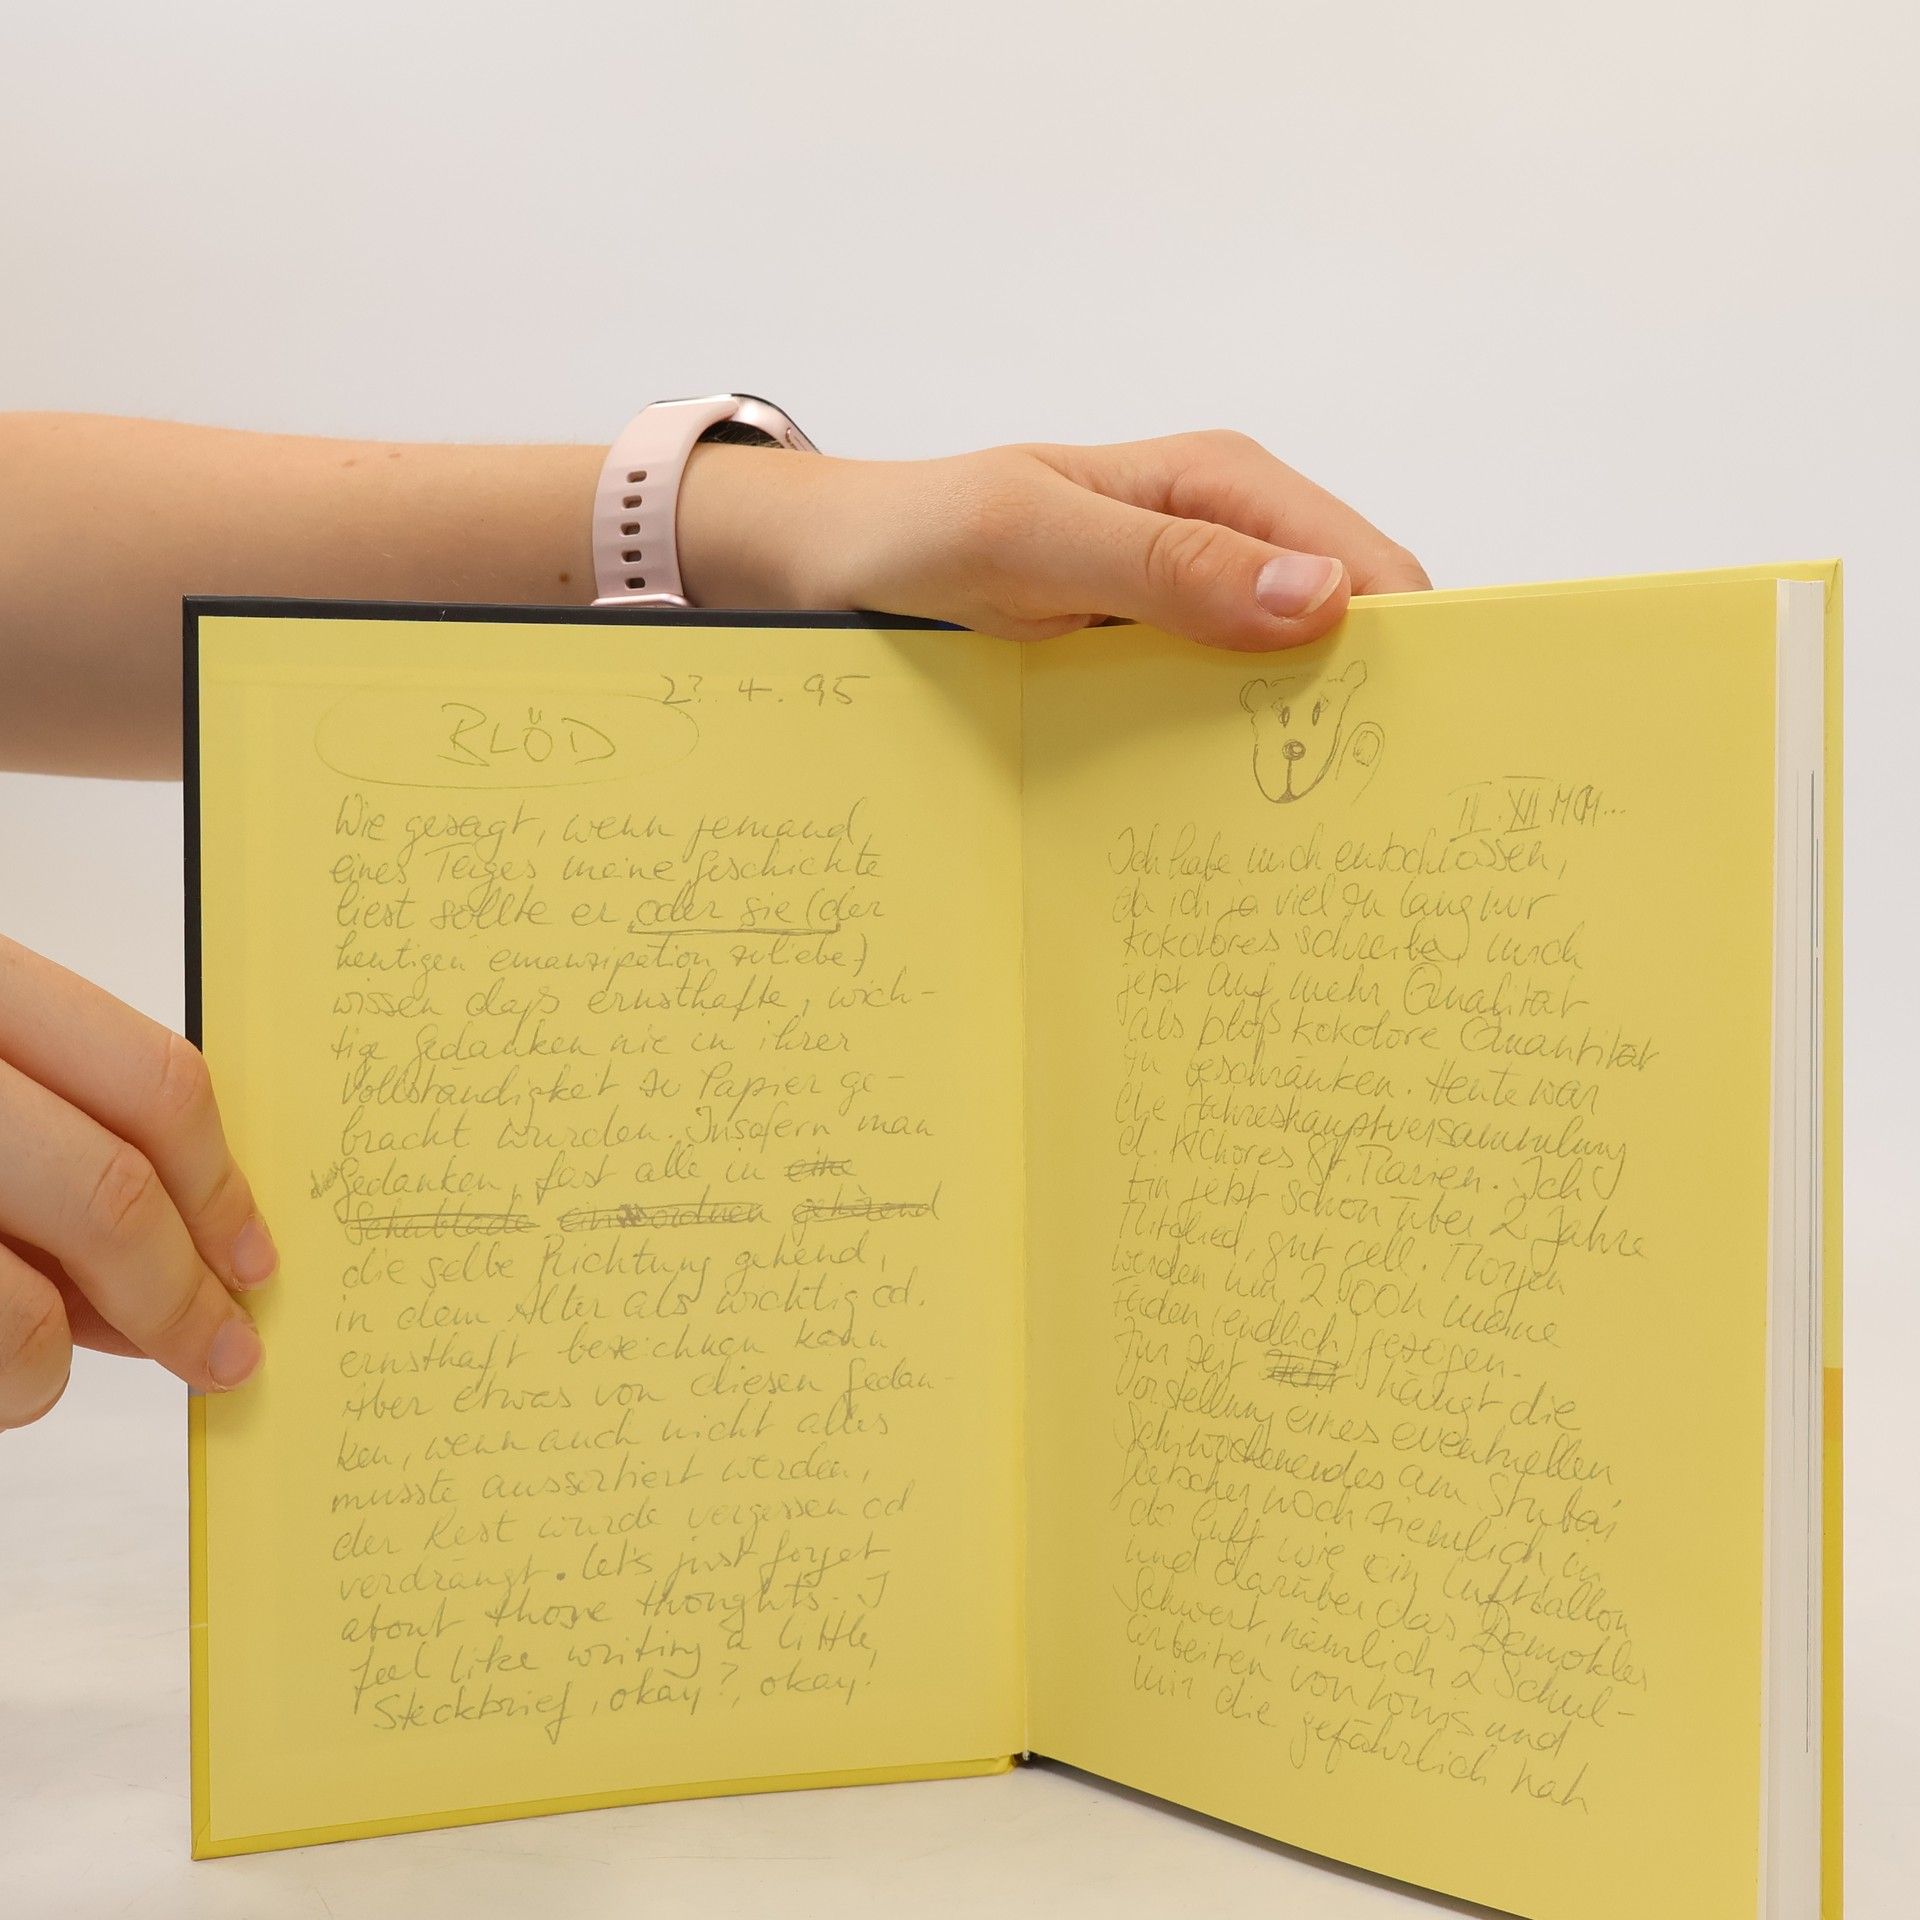 2?. 4. 95
BLÖD
Wie gesagt, wenn jemand
eines Tages meine Geschichte
liest sollte er oder sie (der
heutigen emanzipation zuliebe)
wissen daß ernsthafte, wich-
tige Gedanken nie in ihrer
Vollständigkeit zu Papier ge-
bracht wurden. Insofern man
Gedanken, fast alle in eine
Schublade einzuordnen gehörend
die selbe Richtung gehend,
in dem Alter als wichtig od.
ernsthaft bezeichnen kann
Aber etwas von diesen Gedan-
ken, wenn auch nicht alles
musste aussortiert werden,
der Rest wurde vergessen od
verdrängt. Let's just forget
about those thoughts. I
feel like writing a little,
Steckbrief, okay?, okay!
II. XII MCM...
Ich habe mich entschlossen,
da ich ja viel zu lang nur
kokolores schreibe) mich
jetzt auf mehr Qualität
als bloß kokolore Quantität
zu beschränken. Heute war
die Jahreshauptversammlung
d. KChores St. Marien. Ich
bin jetzt schon über 2 Jahre
Mitglied, gut gell. Morgen
werden um 2.00h meine
Fäden (endlich) gezogen.
Zur Zeit hängt die
Vorstellung eines eventuellen
Schiwochenendes am Stubai
Gletscher noch ziemlich in
da Luft wie ein Luftballon
und darüber das Demokles
Schwert, nämlich 2 Schul-
arbeiten von und
mir die gefährlich nah